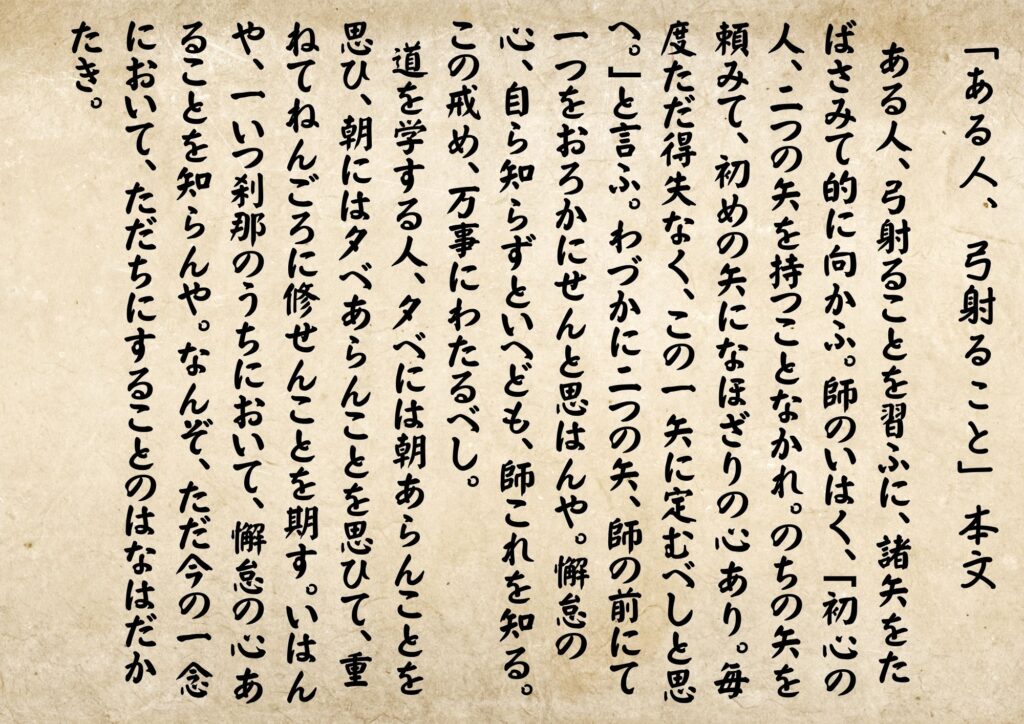 「ある人、弓射ること」本文
ある人、弓射ることを習ふに、諸矢をた
ばさみて的に向かふ。師のいはく、「初心の
人、二つの矢を持つことなかれ。のちの矢を
頼みて、初めの矢になほざりの心あり。毎
度ただ得失なく、この一矢に定むべしと思
へ。」と言ふ。わづかに二つの矢、師の前にて
一つをおろかにせんと思はんや。懈怠の
心、自ら知らずといへども、師これを知る。
この戒め、万事にわたるべし。
道を学する人、夕べには朝あらんことを
思ひ、朝には夕べあらんことを思ひて、重
ねてねんごろに修せんことを期す。いはん
や、一いつ刹那のうちにおいて、懈怠の心あ
ることを知らんや。なんぞ、ただ今の一念
において、ただちにすることのはなはだか
たき。